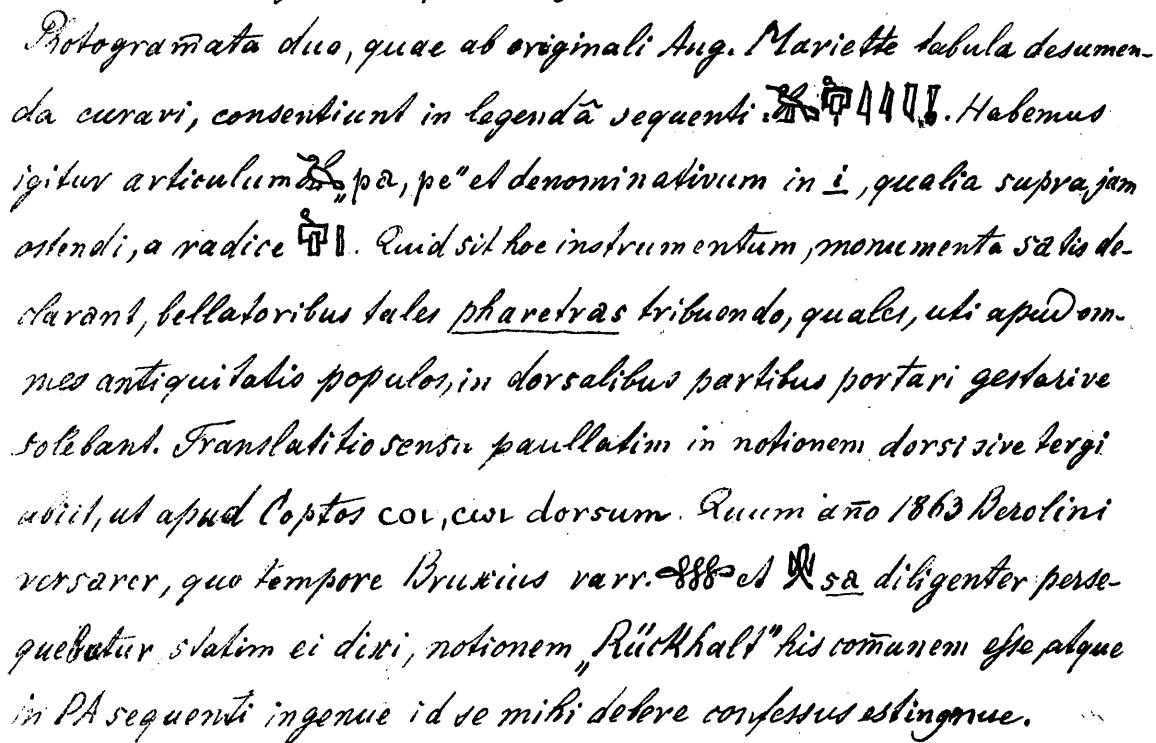 Photogram̅ata duo, quae ab originali Aug. Mariette tabula desumen-
da curavi, consentiunt in legendâ sequenti: . Habemus
igitur articulum „pa, pe" et denominativum in i, qualia supra jam
ostendi, a radice . Quid sit hoc instrumentum, monumenta satis de-
clarant, bellatoribus tales pharetras tribuendo, quales, uti apud om-
nes antiquitatis populos, in dorsalibus partibus portari gestarive
solebant. Translatitio sensu paullatim in notionem dorsi sive tergi
abiit, ut apud Coptos ⲥⲟⲓ, ⲥⲱⲓ dorsum. Quum an̅o 1863 Berolini
versarer, quo tempore Bruxius varr. et sa diligenter perse-
quebatur statim ei dixi, notionem „Rückhalt" his com̅unem esse, atque
in PA sequenti ingenue id se mihi debere confessus est ingenue.